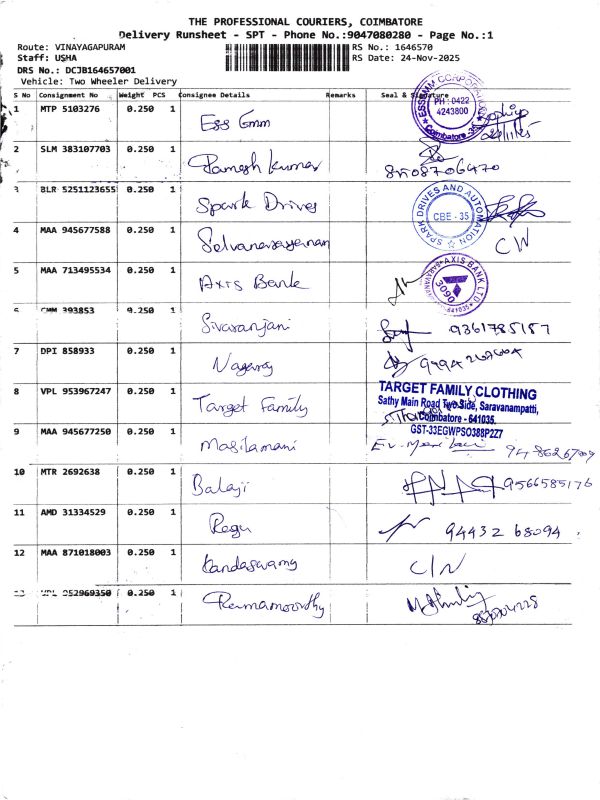 THE PROFESSIONAL COURIERS, COIMBATORE
Delivery Runsheet - SPT - Phone No.:9047080280 - Page No.:1
Route: VINAYAGAPURAM RS No.: 1646570
Staff: USHA RS Date: 24-Nov-2025
DRS No.: DCJB164657001
Vehicle: Two Wheeler Delivery
S No Consignment No Weight PCS Consignee Details Remarks Seal & Signature
1 MTP 5103276 0.250 1 Ess Emm ESSEMM CORPORATION PH : 0422 4243800 Coimbatore
2 SLM 383107703 0.250 1 Ramesh Kumar 8508706470
3 BLR 5251123655 0.250 1 Spark Drives SPARK DRIVES AND AUTOMATION CBE - 35
4 MAA 945677588 0.250 1 Selvanarayanan C/W
5 MAA 713495534 0.250 1 Axis Bank AXIS BANK LTD 3090 641035
6 CMM 393853 0.250 1 Sivaranjani 9361785157
7 DPI 858933 0.250 1 Nagaraj
8 VPL 953967247 0.250 1 Target Family TARGET FAMILY CLOTHING
Sathy Main Road Two Side, Saravanampatti,
Coimbatore - 641035.
GST-33EGWPSO388P2Z7
9 MAA 945677250 0.250 1 Masilamani
10 MTR 2692638 0.250 1 Balaji 9566585176
11 AMD 31334529 0.250 1 Regu 94432 68094
12 MAA 871018003 0.250 1 Kandaswamy C/N
13 VPL 952969350 0.250 1 Ramamoorthy